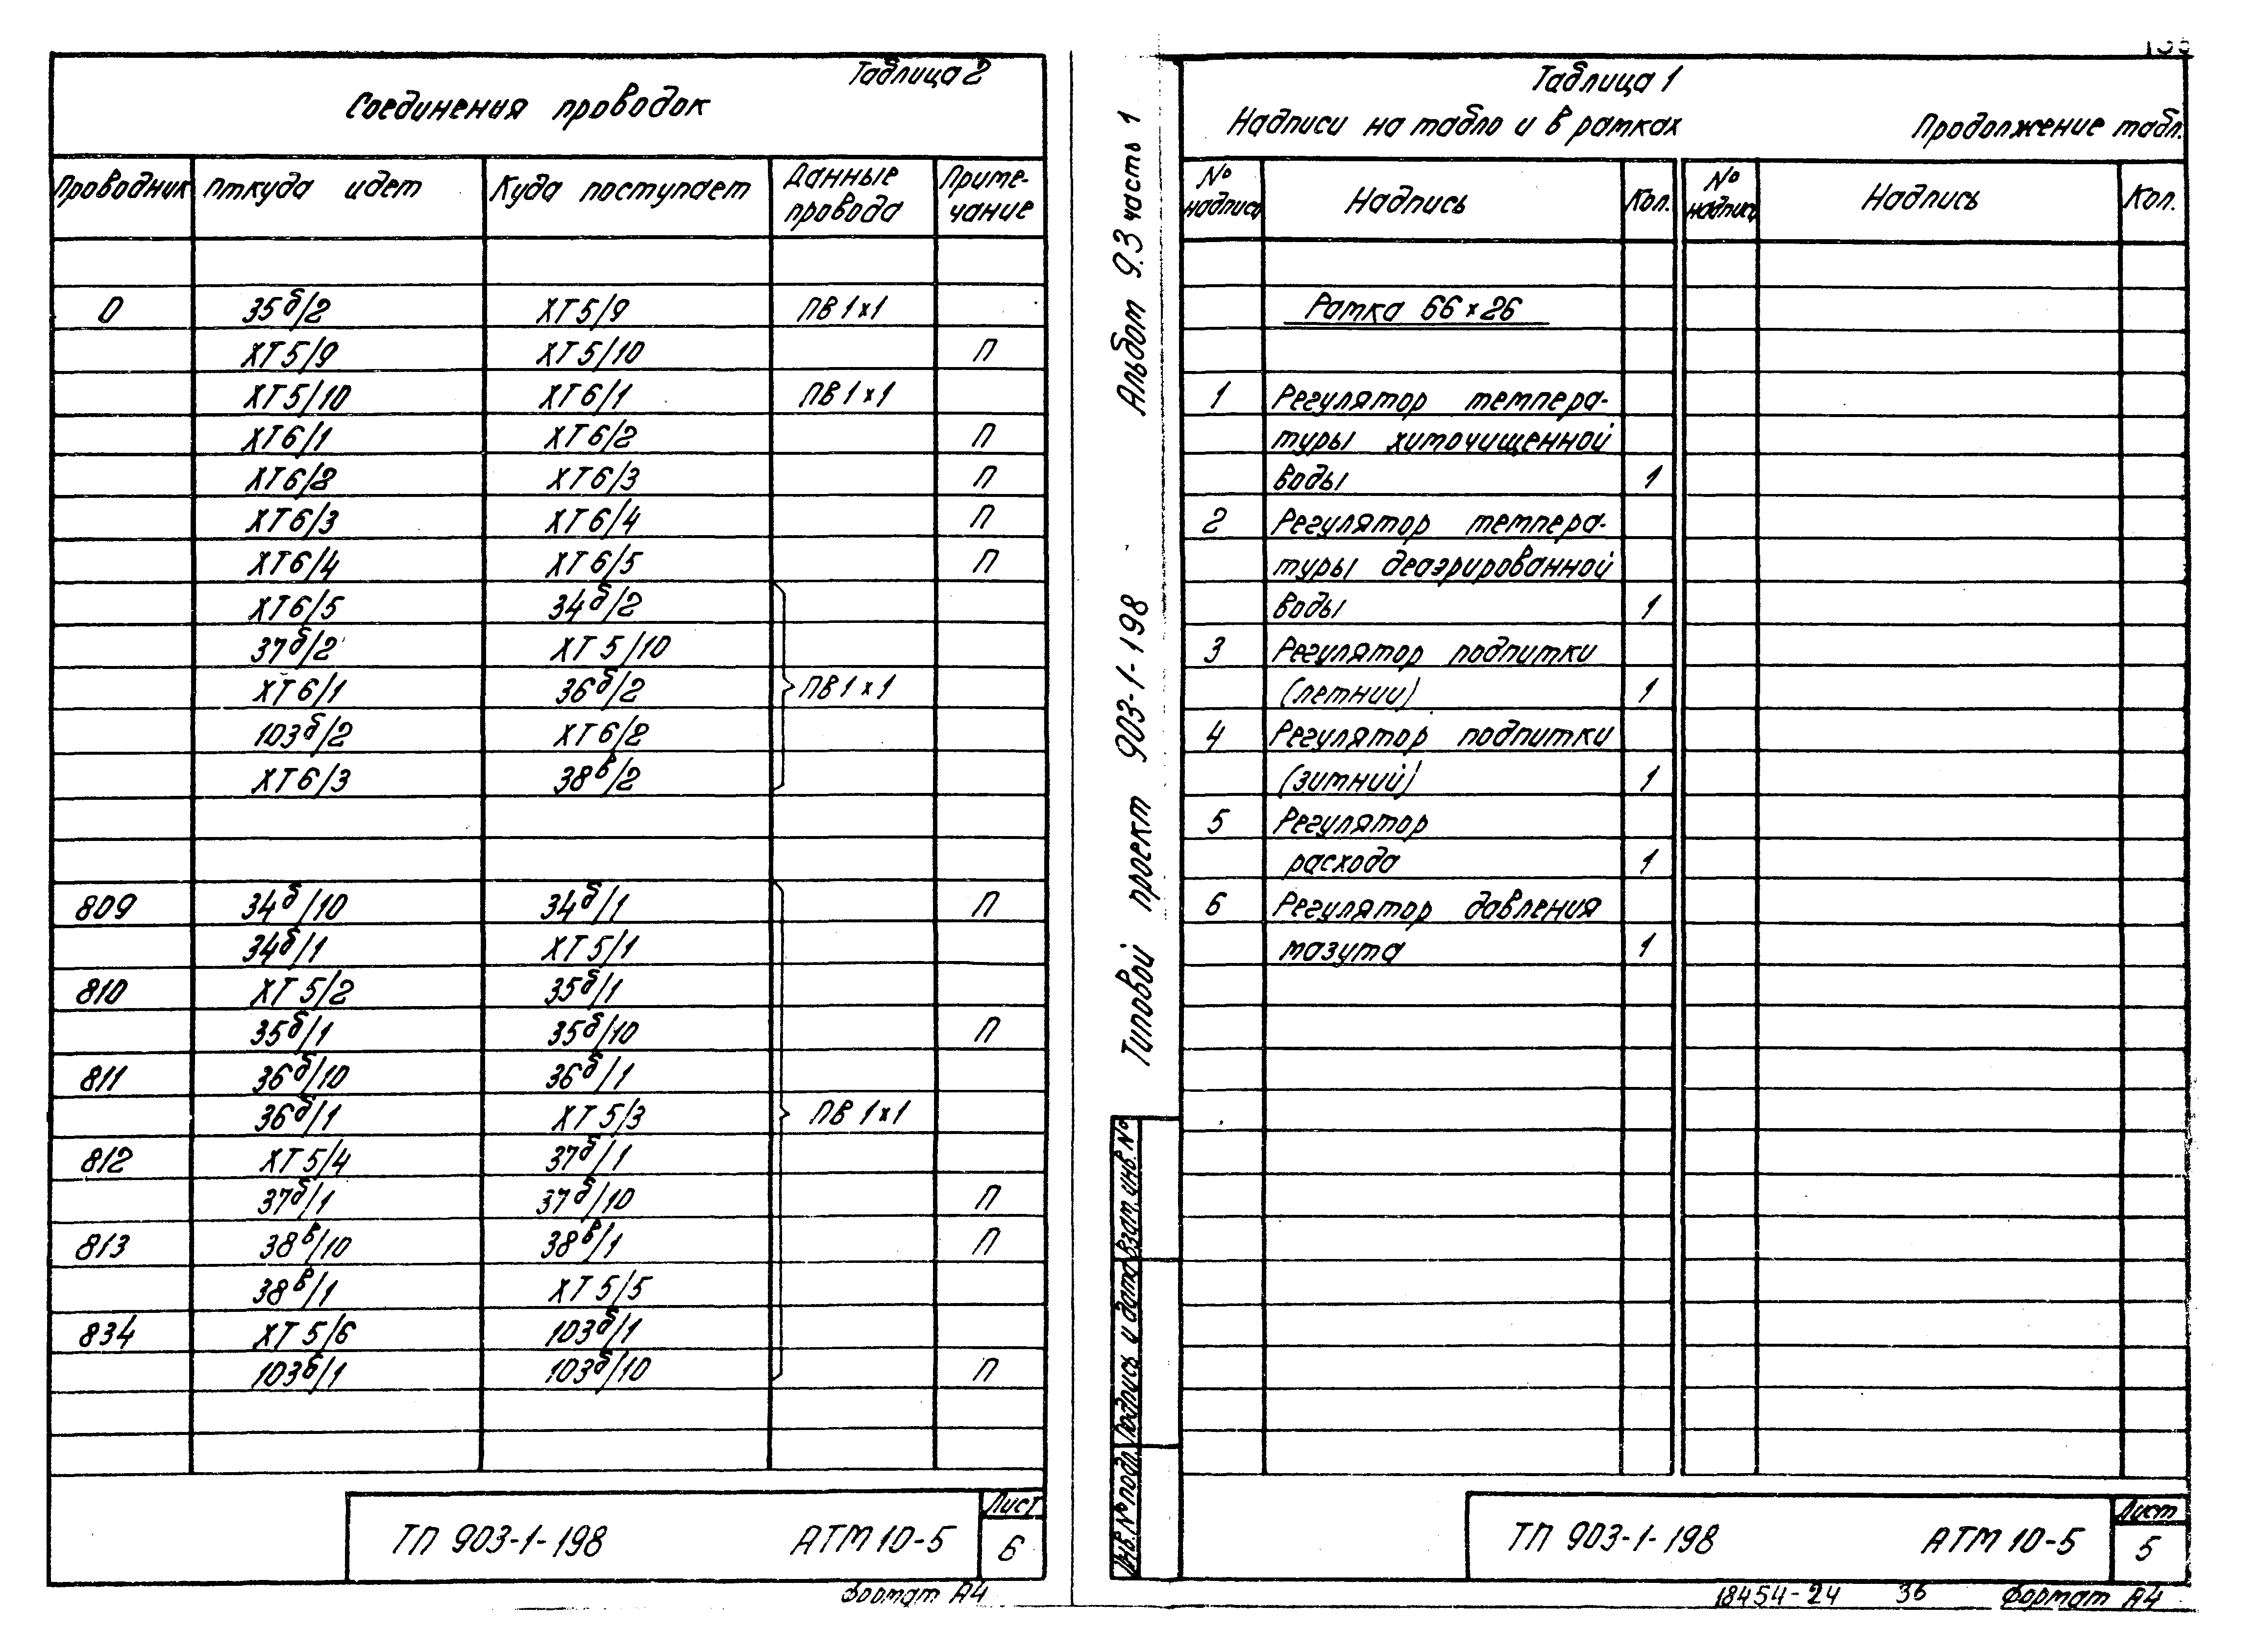 Таблица 2
Соединения проводок
Проводник Откуда идет Куда поступает Данные провода Приме-чание
0 35б/2 ХТ5/9 ПВ 1×1
ХТ5/9 ХТ5/10 П
ХТ5/10 ХТ6/1 ПВ 1×1
ХТ6/1 ХТ6/2 П
ХТ6/2 ХТ6/3 П
ХТ6/3 ХТ6/4 П
ХТ6/4 ХТ6/5 П
ХТ6/5 34б/2
37б/2 ХТ5/10
ХТ6/1 36б/2 ПВ 1×1
103б/2 ХТ6/2
ХТ6/3 38в/2
809 34б/10 34б/1 П
34б/1 ХТ5/1
810 ХТ5/2 35б/1
35б/1 35б/10 П
811 36б/10 36б/1
36б/1 ХТ5/3 ПВ 1×1
812 ХТ5/4 37б/1
37б/1 37б/10 П
813 38в/10 38в/1 П
38в/1 ХТ5/5
834 ХТ5/6 103б/1
103б/1 103б/10 П
ТП 903-1-198 АТМ 10-5 Лист 6
Формат А4
Типовой проект 903-1-198 Альбом 9.3 часть 1
Таблица 1
Надписи на табло и в рамках Продолжение табл.
№ надписи Надпись Кол. № надписи Надпись Кол.
Рамка 66×26
1 Регулятор темпера-
туры химочищенной
воды 1
2 Регулятор темпера-
туры деаэрированной
воды 1
3 Регулятор подпитки
(летний) 1
4 Регулятор подпитки
(зимний) 1
5 Регулятор
расхода 1
6 Регулятор давления
мазута 1
Инв. № подл. Подпись и дата Взам. инв. №
ТП 903-1-198 АТМ 10-5 Лист 5
18454-24 36 Формат А4